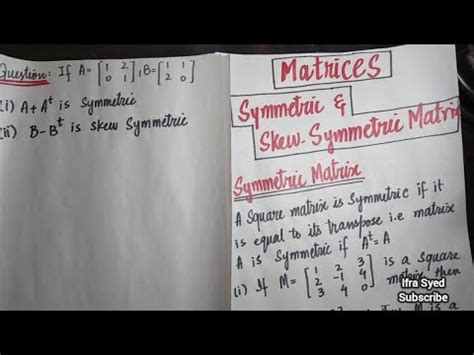 Question: If A = [1 2 0 1], B = [1 1 2 0]
(i) A + Aᵗ is Symmetric
(ii) B - Bᵗ is Skew Symmetric
Matrices
Symmetric &
Skew-Symmetric Matri
Symmetric Matrix
A Square matrix is Symmetric if it
is equal to its transpose i.e matrix
A is Symmetric if Aᵗ = A
(i) If M = [1 2 3 2 -1 4 3 4 0] is a Square
matrix then
Ifra Syed
Subscribe
M is a